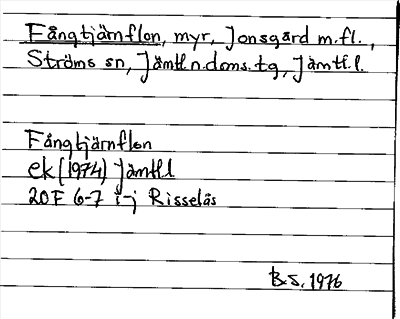 Fångtjärnflon, myr, Jonsgård m.fl.,
Ströms sn, Jämtl.n.doms.tg, Jämtl.l.
Fångtjärnflon
ek (1974) Jämtl.l
20F 6-7 i-j Risselås
B.S. 1976